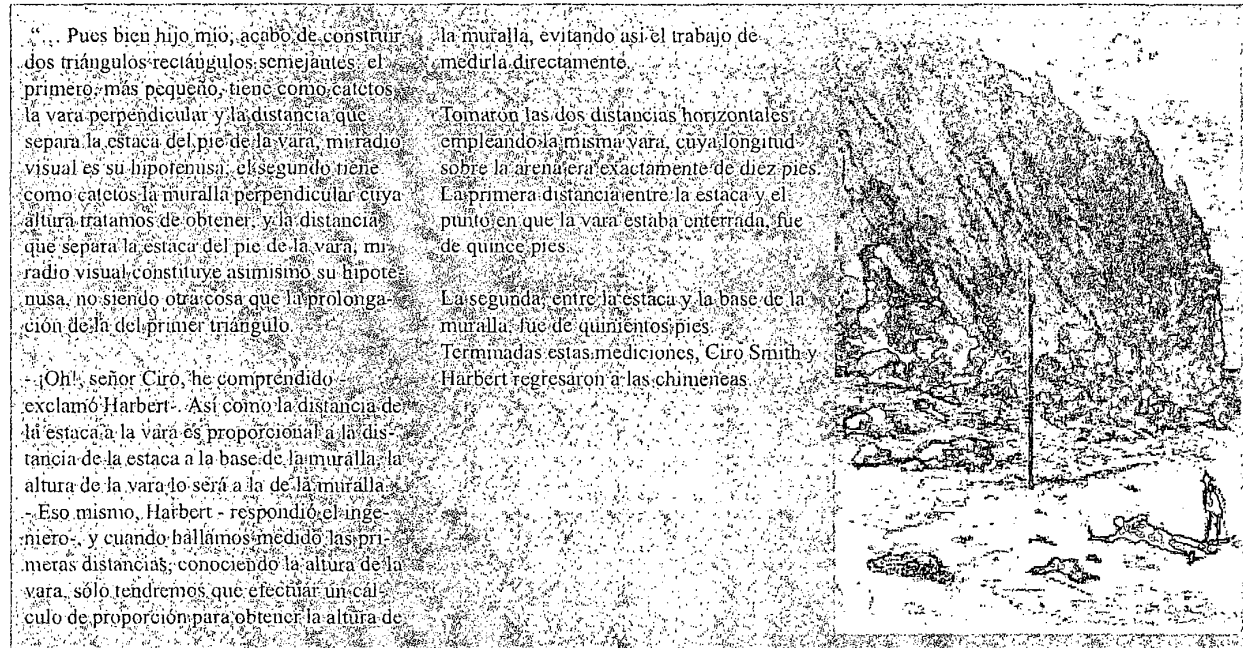 “… Pues bien hijo mío, acabo de construir
dos triángulos rectángulos semejantes: el
primero, más pequeño, tiene como catetos
la vara perpendicular y la distancia que
separa la estaca del pie de la vara, mi radio
visual es su hipotenusa; el segundo tiene
como catetos la muralla perpendicular cuya
altura tratamos de obtener, y la distancia
que separa la estaca del pie de la vara, mi
radio visual constituye asimismo su hipote-
nusa, no siendo otra cosa que la prolonga-
ción de la del primer triángulo.
- ¡Oh!, señor Ciro, he comprendido -
exclamó Harbert-. Así como la distancia de
la estaca a la vara es proporcional a la dis-
tancia de la estaca a la base de la muralla, la
altura de la vara lo será a la de la muralla.
- Eso mismo, Harbert - respondió el inge-
niero-, y cuando hallamos medido las pri-
meras distancias, conociendo la altura de la
vara, sólo tendremos que efectuar un cál-
culo de proporción para obtener la altura de
la muralla, evitando así el trabajo de
medirla directamente.
Tomaron las dos distancias horizontales
empleando la misma vara, cuya longitud
sobre la arena era exactamente de diez pies.
La primera distancia entre la estaca y el
punto en que la vara estaba enterrada, fue
de quince pies.
La segunda, entre la estaca y la base de la
muralla, fue de quinientos pies.
Terminadas estas mediciones, Ciro Smith y
Harbert regresaron a las chimeneas